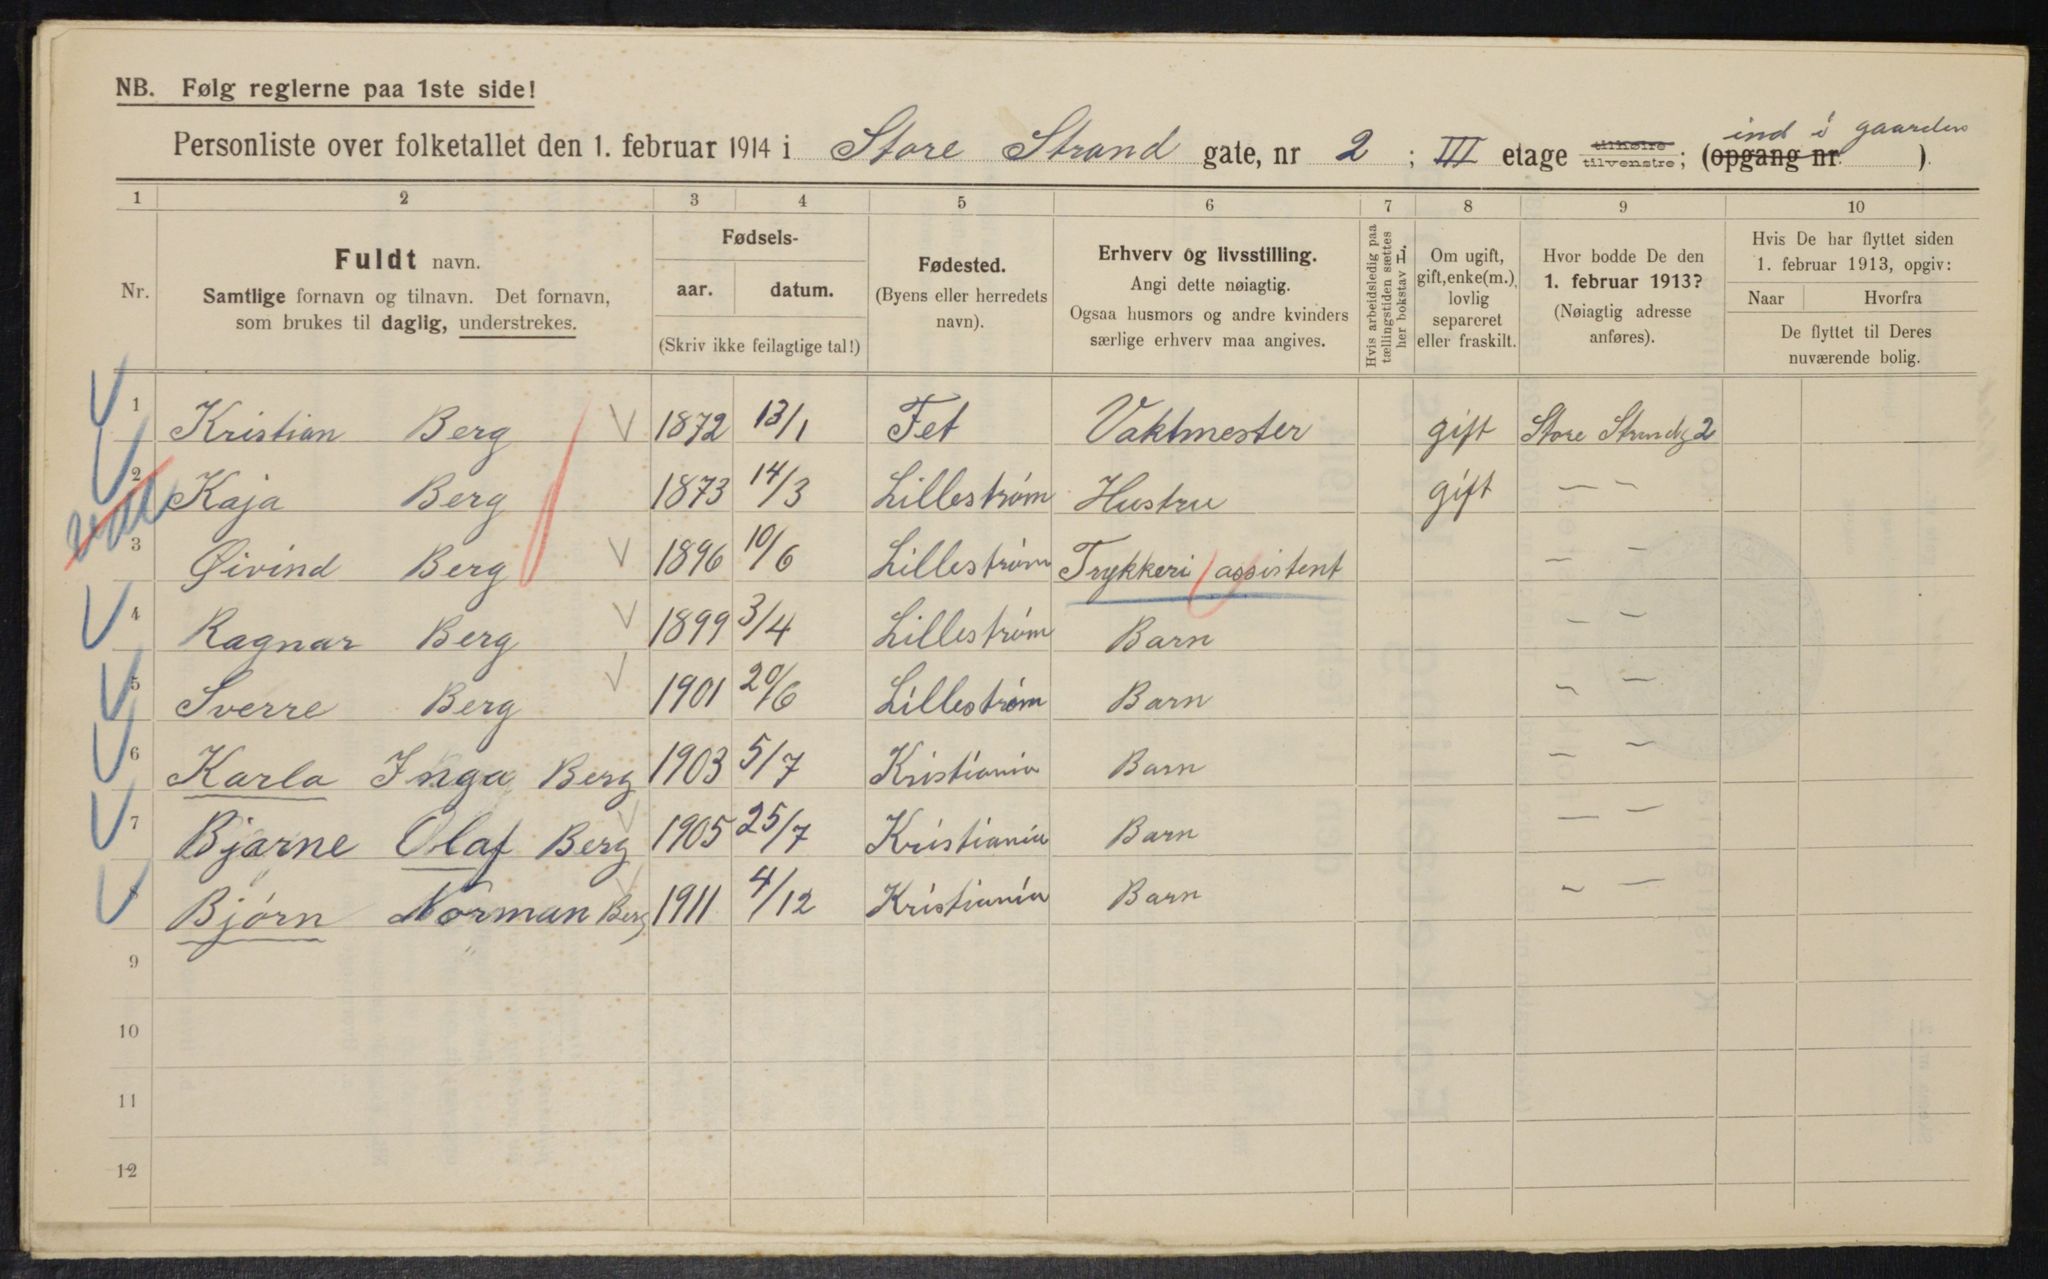 NB. Følg reglerne paa 1ste side!
Personliste over folketallet den 1. februar 1914 i Store Strand gate, nr 2 ; III etage tilhøire tilvenstre; (opgang nr. ind i gaarden ).
1 2 3 4 5 6 7 8 9 10
Nr.
Fuldt navn.
Samtlige fornavn og tilnavn. Det fornavn,
som brukes til daglig, understrekes.
Fødsels-
aar. datum.
(Skriv ikke feilagtige tal!)
Fødested.
(Byens eller herredets
navn).
Erhverv og livsstilling.
Angi dette nøiagtig.
Ogsaa husmors og andre kvinders
særlige erhverv maa angives.
Hvis arbeidsledig paa
tællingstiden sættes
her bokstav L.
Om ugift,
gift, enke(m.),
lovlig
separeret
eller fraskilt.
Hvor bodde De den
1. februar 1913?
(Nøiagtig adresse
anføres).
Hvis De har flyttet siden
1. februar 1913, opgiv:
Naar Hvorfra
De flyttet til Deres
nuværende bolig.
1 Kristian Berg 1872 13/1 Fet Vaktmester gift Store Strandg 2
2 Kaja Berg 1873 14/3 Lillestrøm Hustru gift — —
3 Øivind Berg 1896 10/6 Lillestrøm Trykkeri assistent — —
4 Ragnar Berg 1899 3/4 Lillestrøm Barn — —
5 Sverre Berg 1901 20/6 Lillestrøm Barn — —
6 Karla Inga Berg 1903 5/7 Kristiania Barn — —
7 Bjarne Olaf Berg 1905 25/7 Kristiania Barn — —
8 Bjørn Norman Berg 1911 4/12 Kristiania Barn — —
9
10
11
12